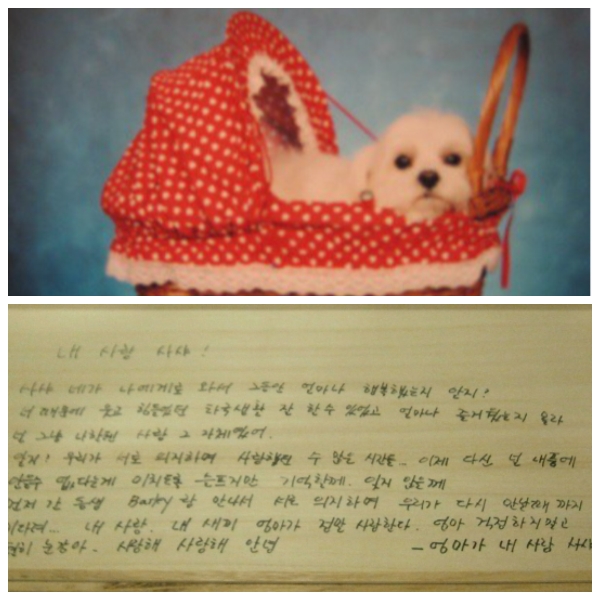 내 사랑 사샤!
사샤 네가 나에게로 와서 그동안 얼마나 행복했는지 알지!
너 때문에 웃고 힘들었던 타국생활 잘 할수 있었고 얼마나 즐거웠는지 몰라
넌 그냥 나한텐 사랑 그 자체였어.
알지! 우리가 서로 의지하며 사랑했던 수 많은 시간들.. 이제 다신 널 내품에
안을수 없다는게 미치도록 슬프지만 기억할께. 잊지 않을께
먼저 간 동생 Barky랑 만나서 서로 의지하며 우리가 다시 만날때 까지
기다려... 내 사랑. 내 새끼 엄마가 정말 사랑한다. 엄마 걱정하지말고
편히 눈감아. 사랑해 사랑해 안녕
- 엄마가 내 사랑 사샤